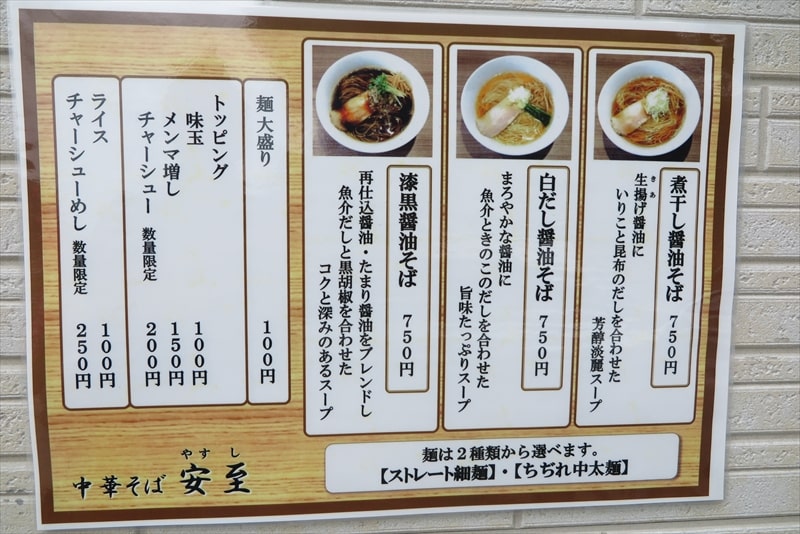 煮干し醤油そば 750円
きあ
生揚げ醤油に
いりこと昆布のだしを合わせた
芳醇淡麗スープ
白だし醤油そば 750円
まろやかな醤油に
魚介ときのこのだしを合わせた
旨味たっぷりスープ
漆黒醤油そば 750円
再仕込醤油・たまり醤油をブレンドし
魚介だしと黒胡椒を合わせた
コクと深みのあるスープ
麺大盛り 100円
トッピング
味玉 100円
メンマ増し 150円
チャーシュー 数量限定 200円
ライス 100円
チャーシューめし 数量限定 250円
麺は2種類から選べます。
【ストレート細麺】・【ちぢれ中太麺】
やすし
中華そば 安至